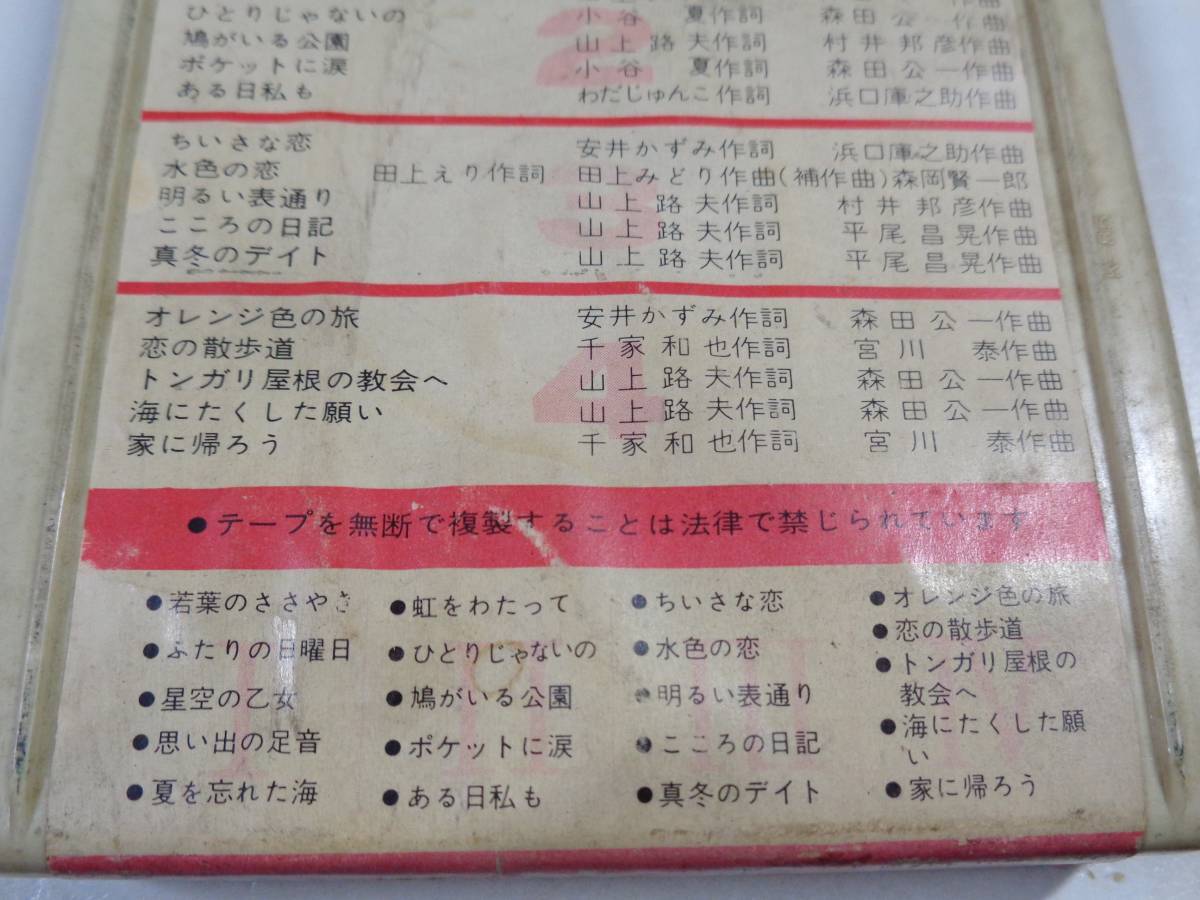 ひとりじゃないの 小谷 夏作詞 森田公一作曲
鳩がいる公園 山上路夫作詞 村井邦彦作曲
ポケットに涙 小谷 夏作詞 森田公一作曲
ある日私も わだじゅんこ作詞 浜口庫之助作曲
2
ちいさな恋 安井かずみ作詞 浜口庫之助作曲
水色の恋 田上えり作詞 田上みどり作曲(補作曲)森岡賢一郎
明るい表通り 山上路夫作詞 村井邦彦作曲
こころの日記 山上路夫作詞 平尾昌晃作曲
真冬のデイト 山上路夫作詞 平尾昌晃作曲
3
オレンジ色の旅 安井かずみ作詞 森田公一作曲
恋の散歩道 千家和也作詞 宮川 泰作曲
トンガリ屋根の教会へ 山上路夫作詞 森田公一作曲
海にたくした願い 山上路夫作詞 森田公一作曲
家に帰ろう 千家和也作詞 宮川 泰作曲
4
●テープを無断で複製することは法律で禁じられています
I
●若葉のささやき
●ふたりの日曜日
●星空の乙女
●思い出の足音
●夏を忘れた海
II
●虹をわたって
●ひとりじゃないの
●鳩がいる公園
●ポケットに涙
●ある日私も
III
●ちいさな恋
●水色の恋
●明るい表通り
●こころの日記
●真冬のデイト
IV
●オレンジ色の旅
●恋の散歩道
●トンガリ屋根の
教会へ
●海にたくした願
い
●家に帰ろう